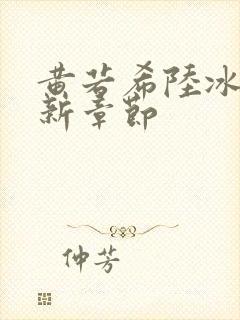 黄若希陸冰
新章節
仲芳